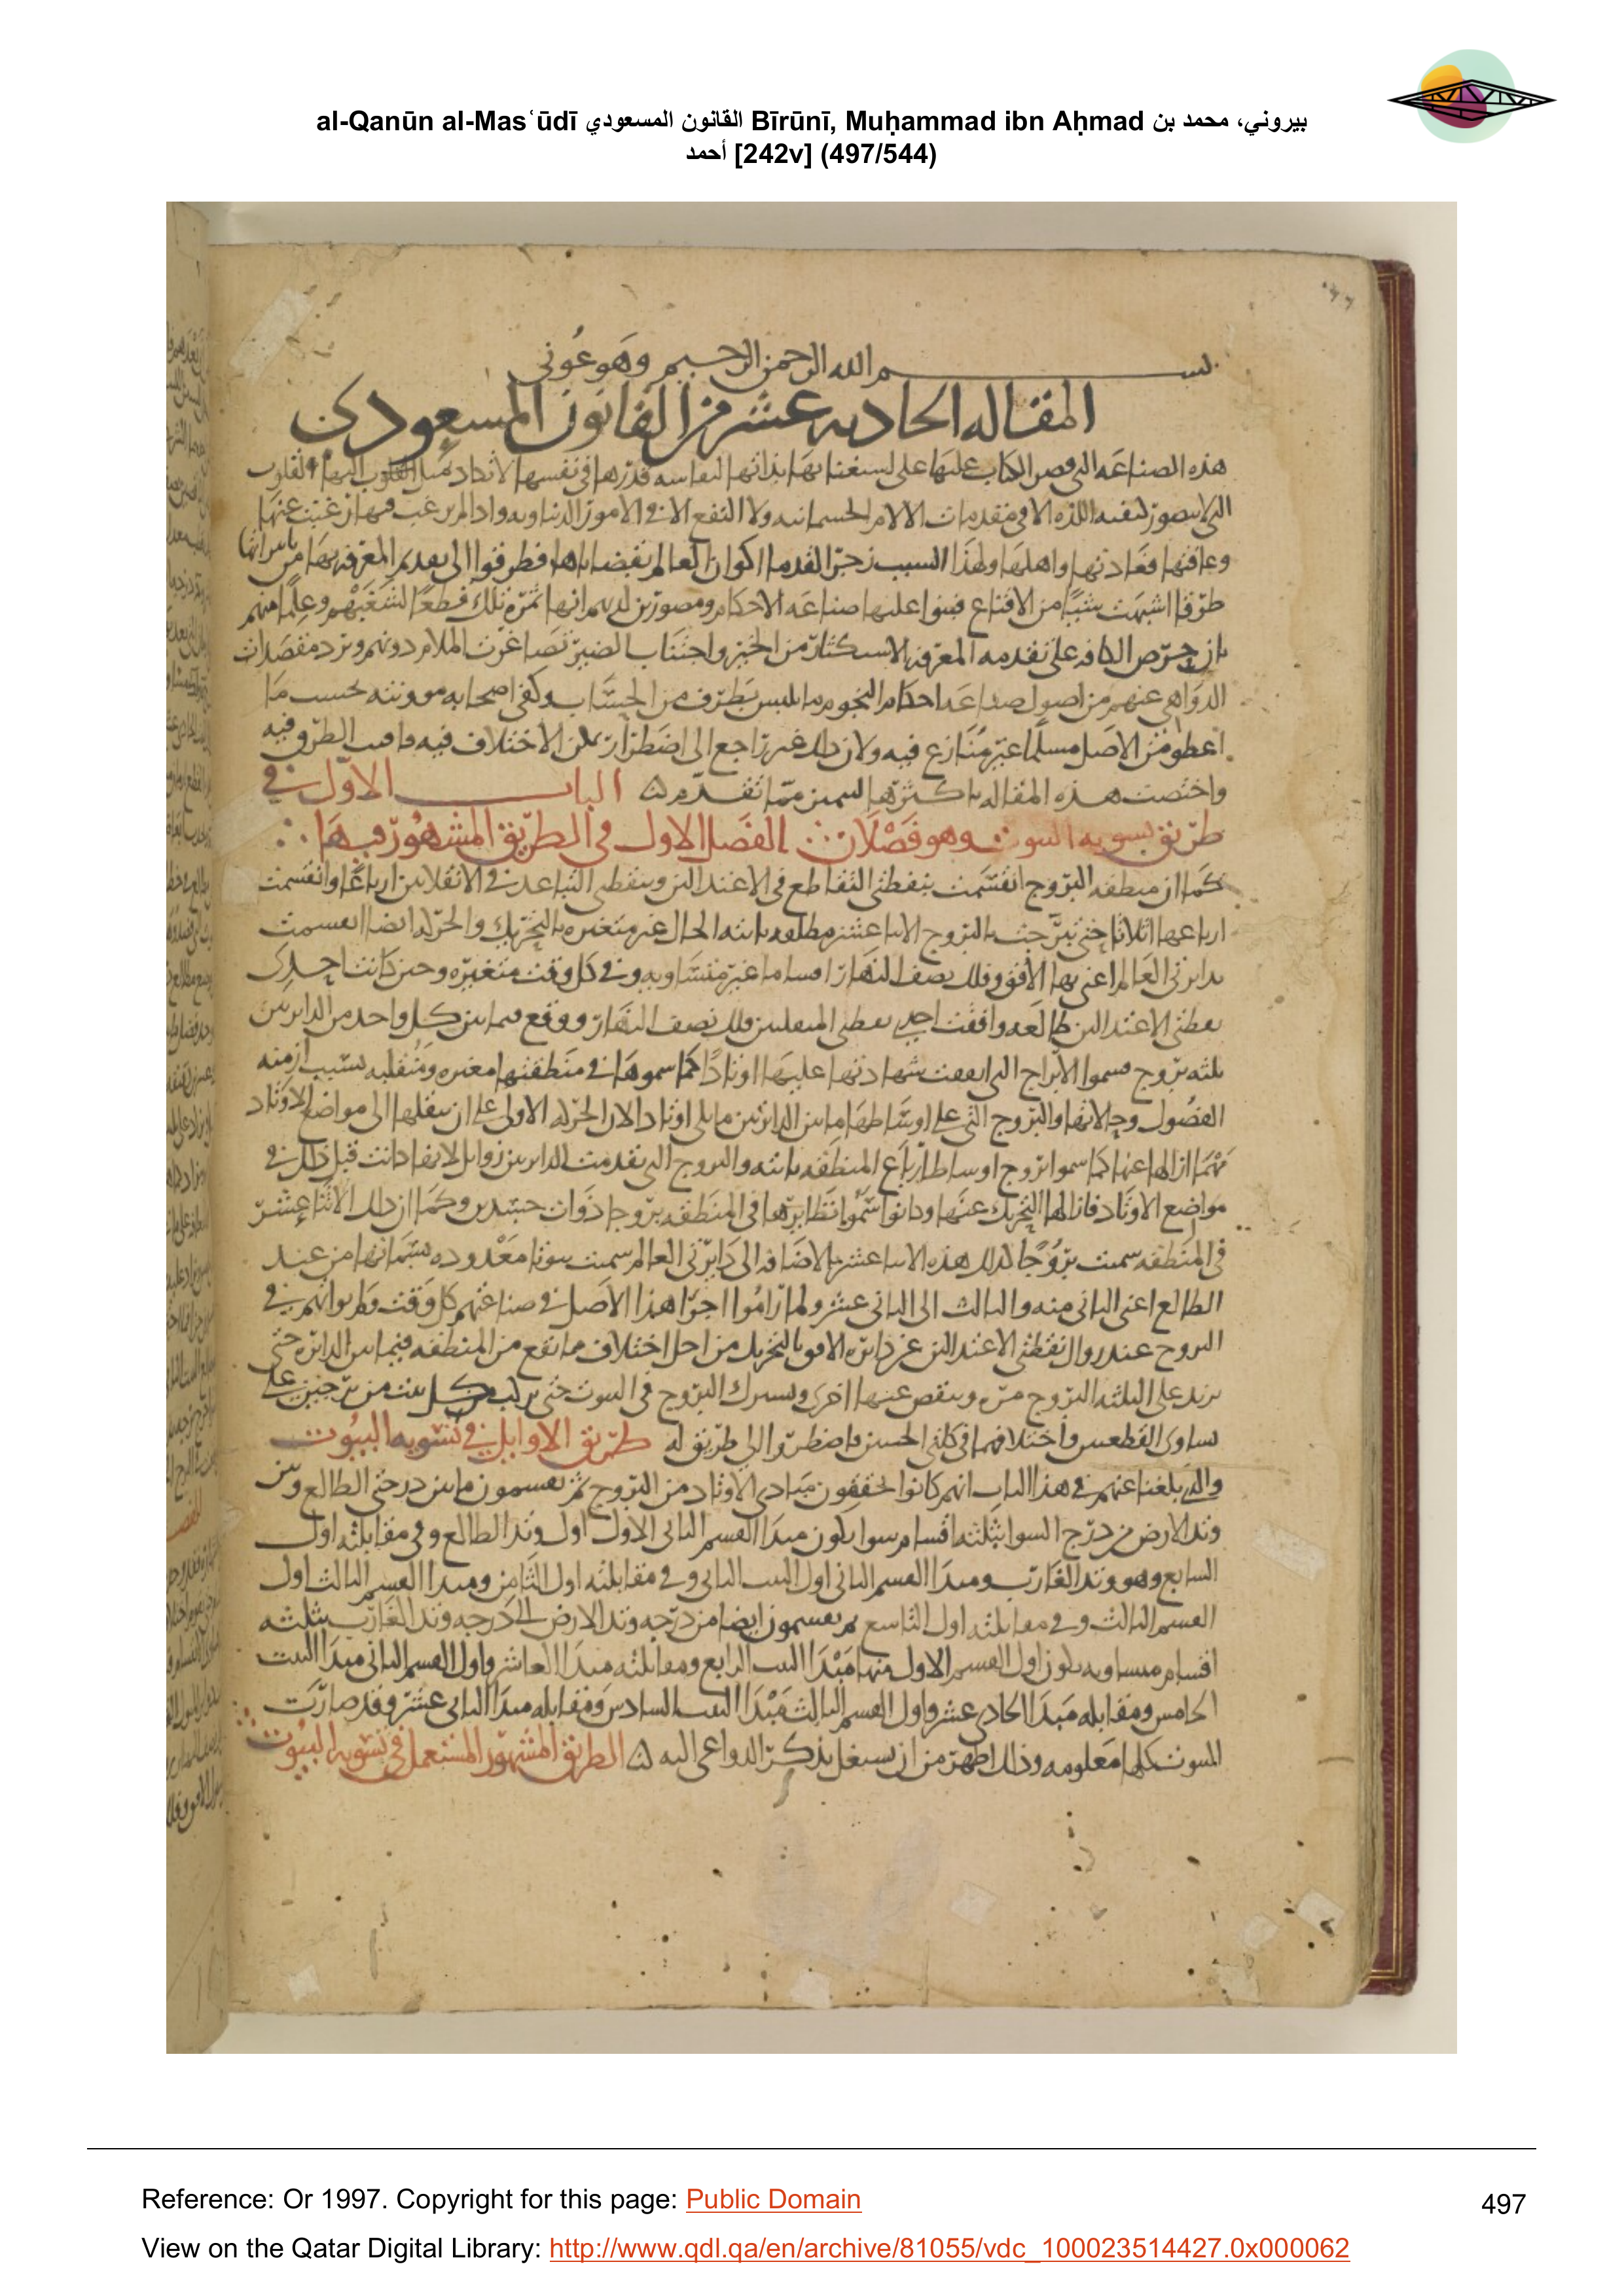 al-Qanūn al-Masʿūdī القانون المسعودي Bīrūnī, Muḥammad ibn Aḥmad بيروني، محمد بن
أحمد [242v] (497/544)
بسم الله الرحمن الرحيم وهو عوني
المقاله الحاديه عشر من القانون المسعودي
هذه الصناعه التي قصر الكتاب عليها على استغنائها بذاتها لنفاسه قدرها في نفسها لا تكاد تميل القلوب اليها والقلوب
التي لا تتصور كيفيه اللذه الا في مقدمات الالام الجسمانيه ولا النفع الا في الامور الدنياويه واذا لم يرغب فيها رغبت عنها
وعافتها فعادتها واهلها ولهذا السبب
طرقا اشبهت شيئا من الاقناع فبنوا عليها صناعه الاحكام ومصورين لديهم انها ثمره تلك
بان حرص الكافه على تقدمه المعرفه الاستكثار من الخير واجتناب الضير
الدواهي عنهم من اصول صناعه احكام النجوم ما يلبس بطرف من الحساب وكفى اصحابه موونته بحسب ما
اعطوه من الاصل مسلما غير منازع فيه ولان ذلك غير راجع الى اضطرار يمكن الاختلاف فيه الطرق فيه
واختصت هذه المقاله مما تقدم الباب الاول في
طريق تسويه البيوت وهو فصلان الفصل الاول في الطريق المشهور فيها
كما ان منطقه البروج انقسمت بنقطتي التقاطع في الاعتدالين وبنقطتي التباعد في الانقلابين ارباعا وانقسمت
ارباعها اثلاثا حتى تبرجت بالبروج الاثنا عشر مطلقه ثابته الحال غير متغيره بالتحريك والحركه ايضا انقسمت
بدايرتي العالم اعني بها الافق وفلك نصف النهار اقساما غير متساويه وفي كل وقت متغيره وحين كانت احدى
نقطتي الاعتدالين طالعه وافقت احدى نقطتي المنقلبين فلك نصف النهار ووقع فيما بين كل واحد من الدايرتين
ثلثه بروج فسموا الابراج التي اتفقت شهادتها عليها اوتادا كما سموها في منطقتها مغيره ومنقلبه بسبب ازمنه
الفصول وحالاتها والبروج التي على اوساطها ما بين الدايرتين مايلي اوتاد لان الحركه الاولى على ان ينقلها الى مواضع الاوتاد
مهما ازالها عنها كما سموا بروج اوساط ارباع المنطقه ثابته والبروج التي تقدمت الدايرتين زوايل لانها كانت قبل ذلك في
مواضع الاوتاد فازالها التحريك عنها وكانوا سموا نظايرها في المنطقه بروجا ذوات جسدين وكما ان ذلك الاثنا عشر
في المنطقه سميت بروجا كذلك هذه الاثنا عشر بالاضافه الى دايرتي العالم سميت بيوتا معدوده بسماتها من عند
الطالع اعني الثاني منه والثالث الى الثاني عشر ولما راموا اجرا هذا الاصل في صناعتهم كل وقت
البروج عند زوال نقطتي الاعتدالين عن دايره الافق بالتحريك من اجل اختلاف ما يقع من المنطقه فيما بين الدايره حتى
يزيد على الثلثه البروج مره وينقص عنها اخرى ويشترك البروج في البيوت حتى يركب كل بيت من برجين على
تساوي القطعتين واختلافهما في كلتي الجنبين فاضطروا الى طريق له طريق الاوايل في تسويه البيوت
والذي بلغنا عنهم في هذا الباب انهم كانوا يحققون مبادي الاوتاد من البروج ثم يقسمون ما بين درجتي الطالع وبين
وتد الارض من درج السوا بثلثه اقسام سوا يكون مبدا القسم الاول اول وتد الطالع وفي مقابلته اول
السابع وهو وتد الغارب ومبدا القسم الثاني اول البيت الثاني وفي مقابلته اول الثامن ومبدا القسم الثالث اول
القسم الثالث وفي مقابلته اول التاسع ثم يقسمون ايضا من درجه وتد الارض الى درجه وتد الغارب بثلثه
اقسام متساويه يكون اول القسم الاول منها مبدا البيت الرابع ومقابلته مبدا العاشر واول القسم الثاني مبدا البيت
الخامس ومقابله مبدا الحادي عشر واول القسم الثالث مبدا البيت السادس ومقابله مبدا الثاني عشر وقد صارت
البيوت كلها معلومه وذلك اظهر من ان يشغل بذكر الدواعي اليه الطريق المشهور المستعمل في تسويه البيوت
Reference: Or 1997. Copyright for this page: Public Domain
497
View on the Qatar Digital Library: http://www.qdl.qa/en/archive/81055/vdc_100023514427.0x000062